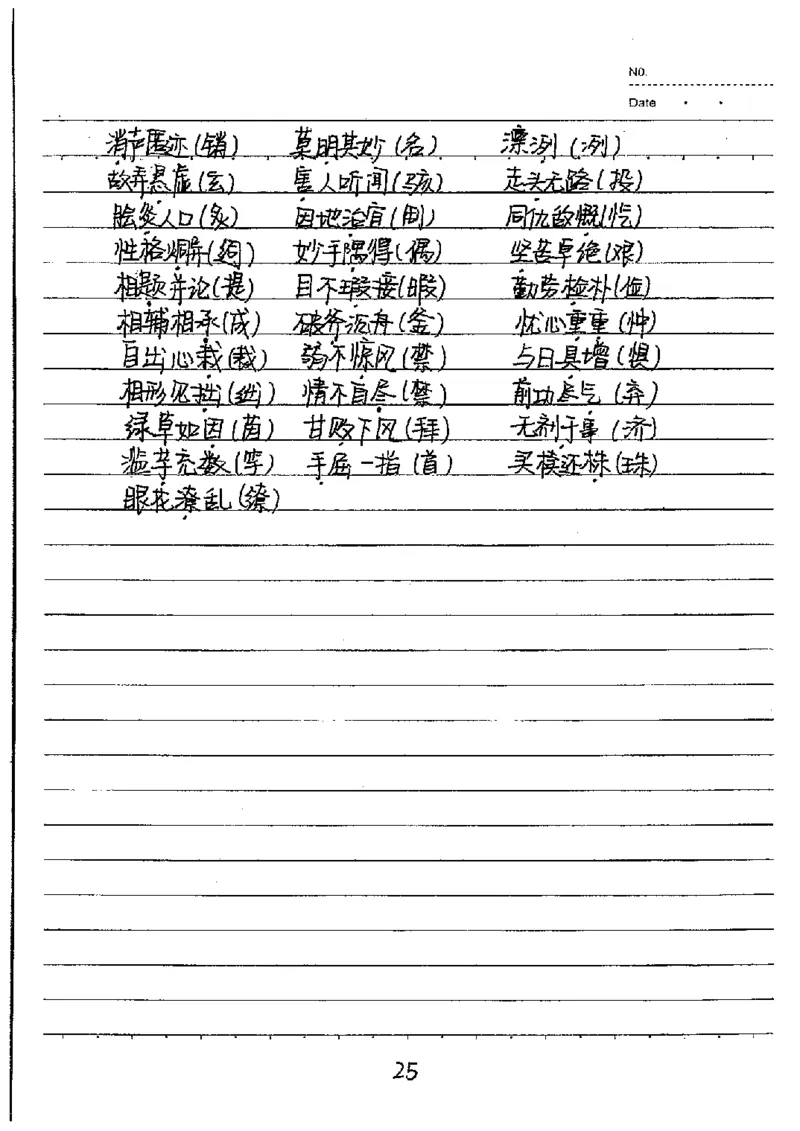 No.
Date
消声匿迹(销) 莫明其妙(名) 漂冽(冽)
故弄悬虚(玄) 害人听闻(骇) 走头无路(投)
脍炙人口(炙) 因地治宜(制) 同仇敌慨(忾)
性格炯异(迥) 妙手隅得(偶) 坚苦卓绝(艰)
相题并论(提) 目不瑕接(暇) 勤劳检朴(俭)
相辅相承(成) 破斧沉舟(釜) 忧心重重(忡)
自出心栽(裁) 弱不惊风(禁) 与日具增(俱)
相形见拙(绌) 情不自尽(禁) 前功尽气(弃)
绿草如因(茵) 甘败下风(拜) 无剂于事(济)
滥芋充数(竽) 手屈一指(首) 买模还株(珠)
眼花潦乱(缭)
25